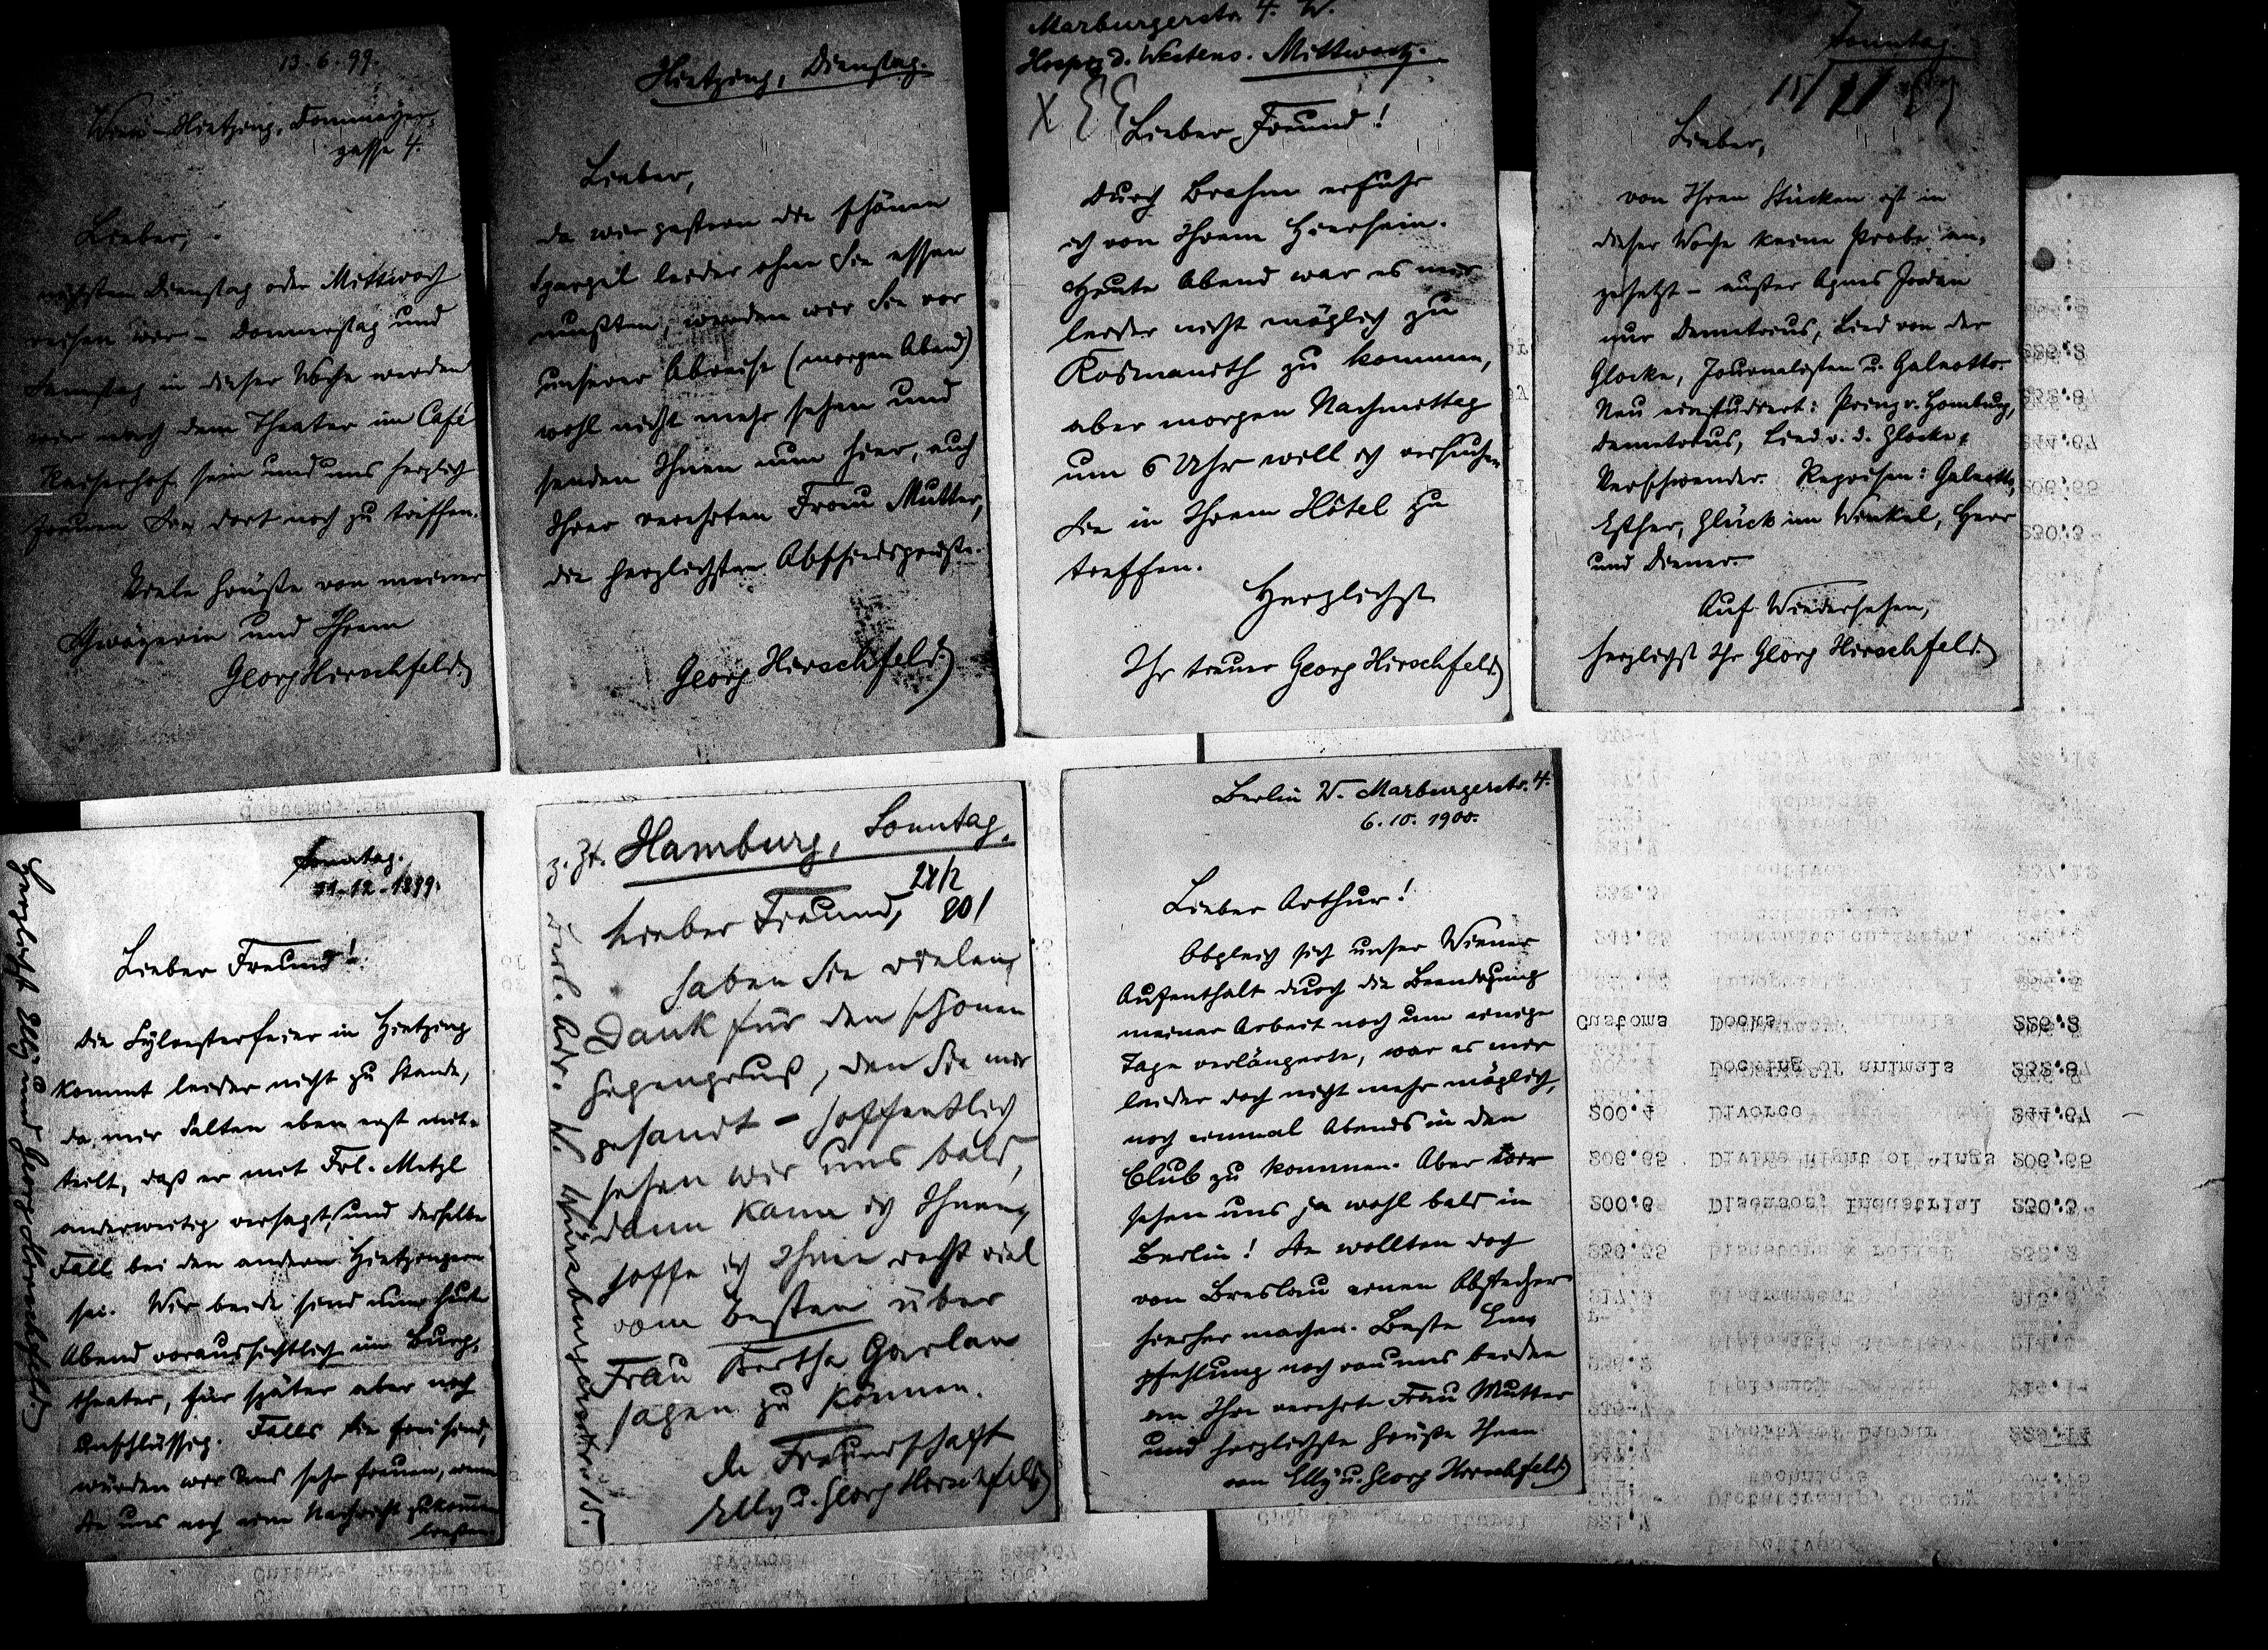 13. 6. 99.
Wien-Hietzing, Dommayer-
gasse 4.
Lieber,
nächsten Dienstag oder Mittwoch
reisen wir – Donnerstag und
Samstag in dieser Woche werden
wir nach dem Theater im Café
Kaiserhof sein und uns herzlich
freuen Sie dort noch zu treffen.
Viele Grüße von meiner
Schwägerin und Ihrem
Georg Hirschfeld.
Hietzing, Dienstag.
Lieber,
da wir gestern die schönen
Spargel leider ohne Sie essen
mußten, werden wir Sie vor
unserer Abreise (morgen Abend)
wohl nicht mehr sehen und
senden Ihnen nun hier, auch
Ihrer verehrten Frau Mutter,
die herzlichsten Abschiedsgrüße.
Georg Hirschfeld
Marburgerstr. 4. W.
Hospiz d. Westens. Mittwoch.
Lieber Freund!
Durch Brahm erfuhr
ich von Ihrem Hiersein.
Heute Abend war es mir
leider nicht möglich zu
Kosmanith zu kommen,
aber morgen Nachmittag
um 6 Uhr will ich versuchen
Sie in Ihrem Hôtel zu
treffen.
Herzlichst
Ihr treuer Georg Hirschfeld
Sonntag.
15/
Lieber,
von Ihren Stücken ist in
dieser Woche keine Probe an-
gesetzt – außer Agnes Jordan
nur Demetrius, Lied von der
Glocke, Journalisten u. Galeotto.
Neu einstudiert: Prinz v. Homburg,
Demetrius, Lied v. d. Glocke,
Verschwender. Reprisen: Galeotto,
Esther, Glück im Winkel, Herr
und Diener.
Auf Wiedersehen,
herzlichst Ihr Georg Hirschfeld.
Sonntag.
31-12-1899.
Lieber Freund!
Die Sylvesterfeier in Hietzing
kommt leider nicht zu Stande,
da mir Salten eben erst mit-
teilt, daß er mit Frl. Metzl
anderweitig versagt, und derselbe
Fall bei den andern Hietzingern
sei. Wir beide sind nun heute
Abend voraussichtlich im Burg-
theater, für später aber noch
unschlüssig. Falls Sie frei sind,
würden wir uns sehr freuen, wenn
Sie uns noch eine Nachricht zukommen
ließen.
Herzlichst Elly und Georg Hirschfeld
z. Zt. Hamburg, Sonntag.
24/2
901
Lieber Freund,
haben Sie vielen
Dank für den schönen
gesandt – hoffentlich
sehen wir uns bald,
dann kann ich Ihnen,
hoffe ich Ihnen recht viel
vom Besten über
Frau Bertha Garlan
sagen zu können.
In Freundschaft
Elly u. Georg Hirschfeld
Berl. Adr. W. Würzburgerstr. 15.
Berlin W. Marburgerstr. 4.
6. 10. 1900.
Lieber Arthur!
Obgleich sich unser Wiener
Aufenthalt durch die Beendigung
meiner Arbeit noch um einige
Tage verlängerte, war es mir
leider doch nicht mehr möglich,
noch einmal Abends in den
Club zu kommen. Aber wir
sehen uns ja wohl bald in
Berlin! Sie wollten doch
von Breslau einen Abstecher
hierher machen. Beste Em-
pfehlung noch von uns beiden
an Ihre verehrte Frau Mutter
und herzlichste Grüße Ihnen
von Elly u. Georg Hirschfeld
Customs Docks
Docking of animals
200.4 Divorce
206.65 Divine Right of Kings 206.65
200.6 Diseases, Industrial